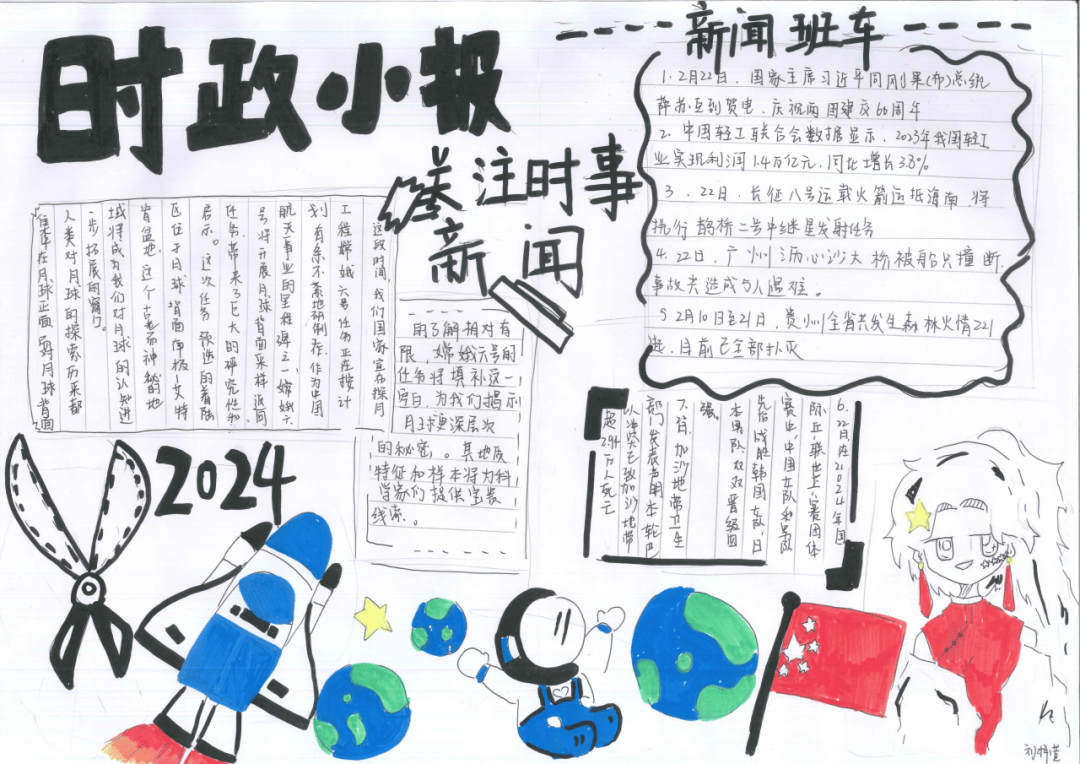 时政小报
关注时事
新闻
新闻班车
1. 2月22日,国家主席习近平同刚果(布)总统
萨苏互致贺电、庆祝两国建交60周年
2. 中国轻工业联合会数据显示,2023年我国轻工
业实现利润1.4万亿元,同比增长3.8%
3. 22日,长征八号运载火箭运抵海南,将
执行鹊桥二号中继星发射任务
4. 22日,广州沥心沙大桥被船只撞断,
事故共造成5人遇难。
5 2月10日至21日,贵州全省共发生森林火情221
起,目前已全部扑灭
这段时间,我们国家宣布探月
工程嫦娥六号任务正在按计
划有条不紊地研制作。作为中国
航天事业的里程碑之一,嫦娥六
号将开展月球背面采样返回
任务,带来了巨大的研究价值和
启示。这次任务预选的着陆
区位于月球背面南极-艾特
肯盆地。这个古老而神秘的地
域将成为我们对月球的认知进
一步拓展的窗门。
人类对月球的探索历来都
集中在月球正面,而对月球背面
的了解相对有
限,嫦娥六号的
任务将填补这一
空白,为我们揭示
月球更深层次
的秘密。其地质
特征和样本将为科
学家们提供宝贵
线索。
6. 22日,在2024年国
际乒联世乒赛团体
赛中,中国女队和男队
先后战胜韩国女队,日
本男队,双双晋级四
强。
7. 22日,加沙地带卫生
部门发表声明,本轮巴
以冲突已致加沙地带
超2.94万人死亡
2024